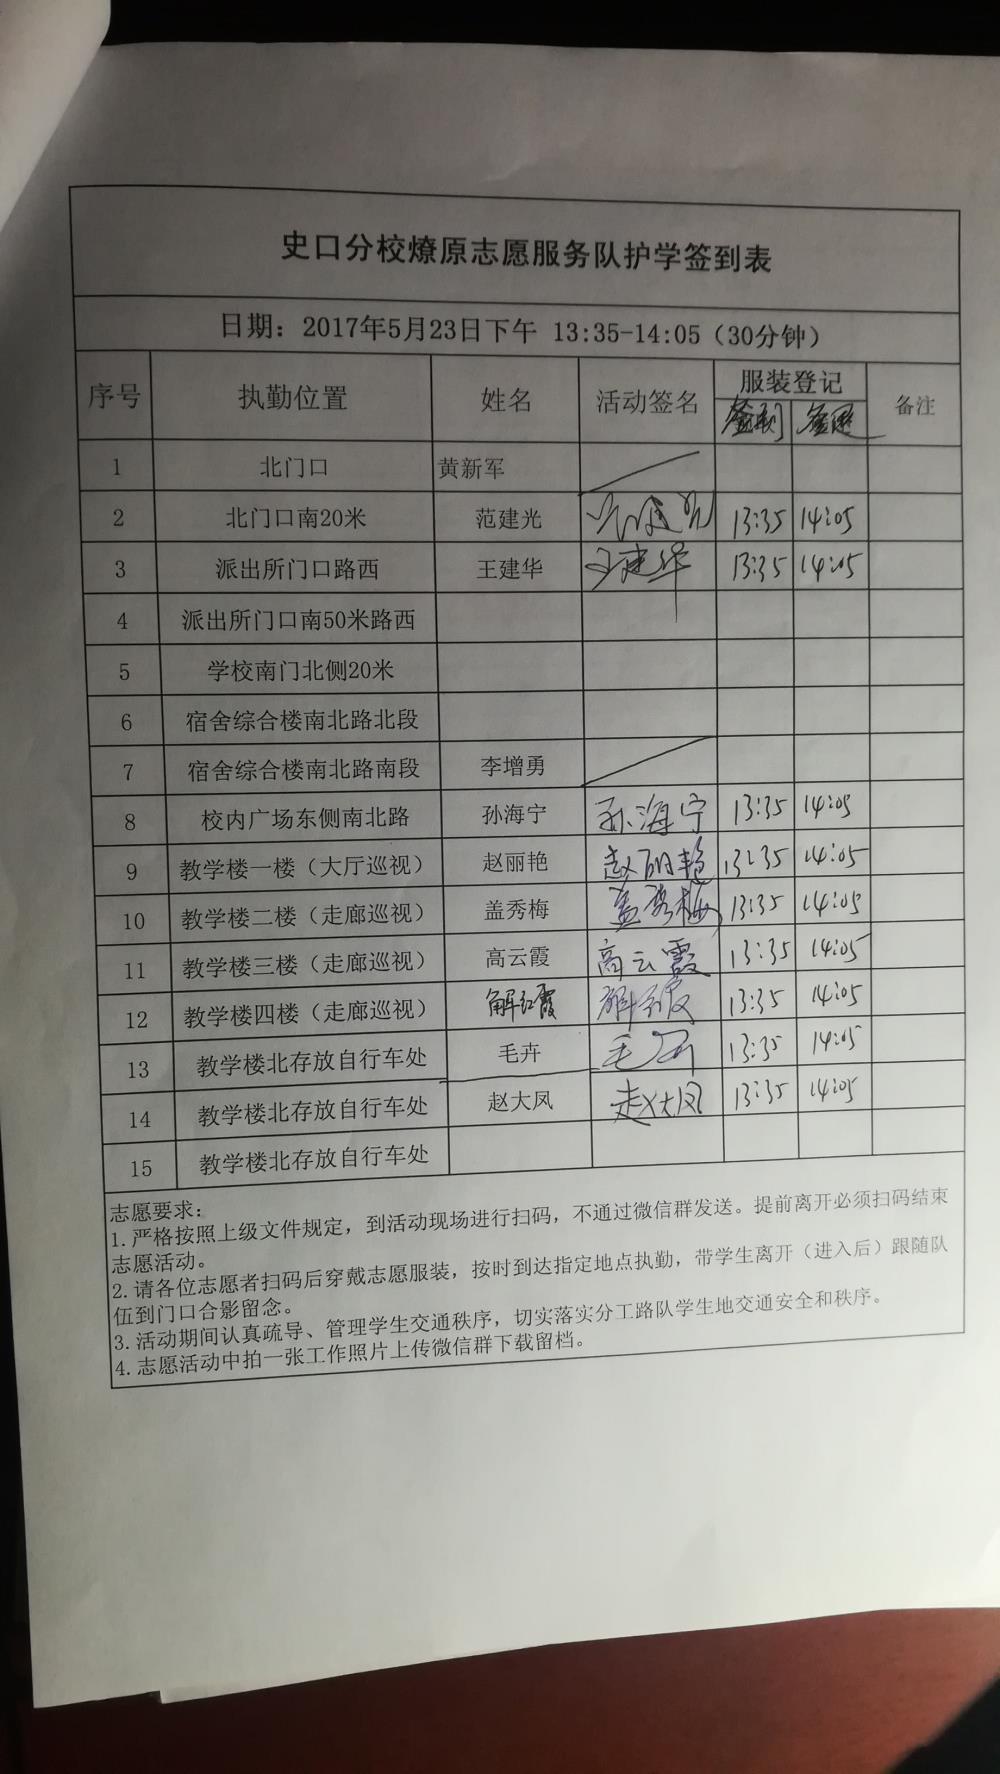 史口分校燎原志愿服务队护学签到表
日期：2017年5月23日下午 13:35-14:05（30分钟）
序号 执勤位置 姓名 活动签名 服装登记 备注
签到 签退
1 北门口 黄新军
2 北门口南20米 范建光 范建光 13:35 14:05
3 派出所门口路西 王建华 王建华 13:35 14:05
4 派出所门口南50米路西
5 学校南门北侧20米
6 宿舍综合楼南北路北段
7 宿舍综合楼南北路南段 李增勇
8 校内广场东侧南北路 孙海宁 孙海宁 13:35 14:05
9 教学楼一楼（大厅巡视） 赵丽艳 赵丽艳 13:35 14:05
10 教学楼二楼（走廊巡视） 盖秀梅 盖秀梅 13:35 14:05
11 教学楼三楼（走廊巡视） 高云霞 高云霞 13:35 14:05
12 教学楼四楼（走廊巡视） 解红霞 解红霞 13:35 14:05
13 教学楼北存放自行车处 毛卉 毛卉 13:35 14:05
14 教学楼北存放自行车处 赵大凤 赵大凤 13:35 14:05
15 教学楼北存放自行车处
志愿要求：
1.严格按照上级文件规定，到活动现场进行扫码，不通过微信群发送。提前离开必须扫码结束
志愿活动。
2.请各位志愿者扫码后穿戴志愿服装，按时到达指定地点执勤，带学生离开（进入后）跟随队
伍到门口合影留念。
3.活动期间认真疏导、管理学生交通秩序，切实落实分工路队学生地交通安全和秩序。
4.志愿活动中拍一张工作照片上传微信群下载留档。